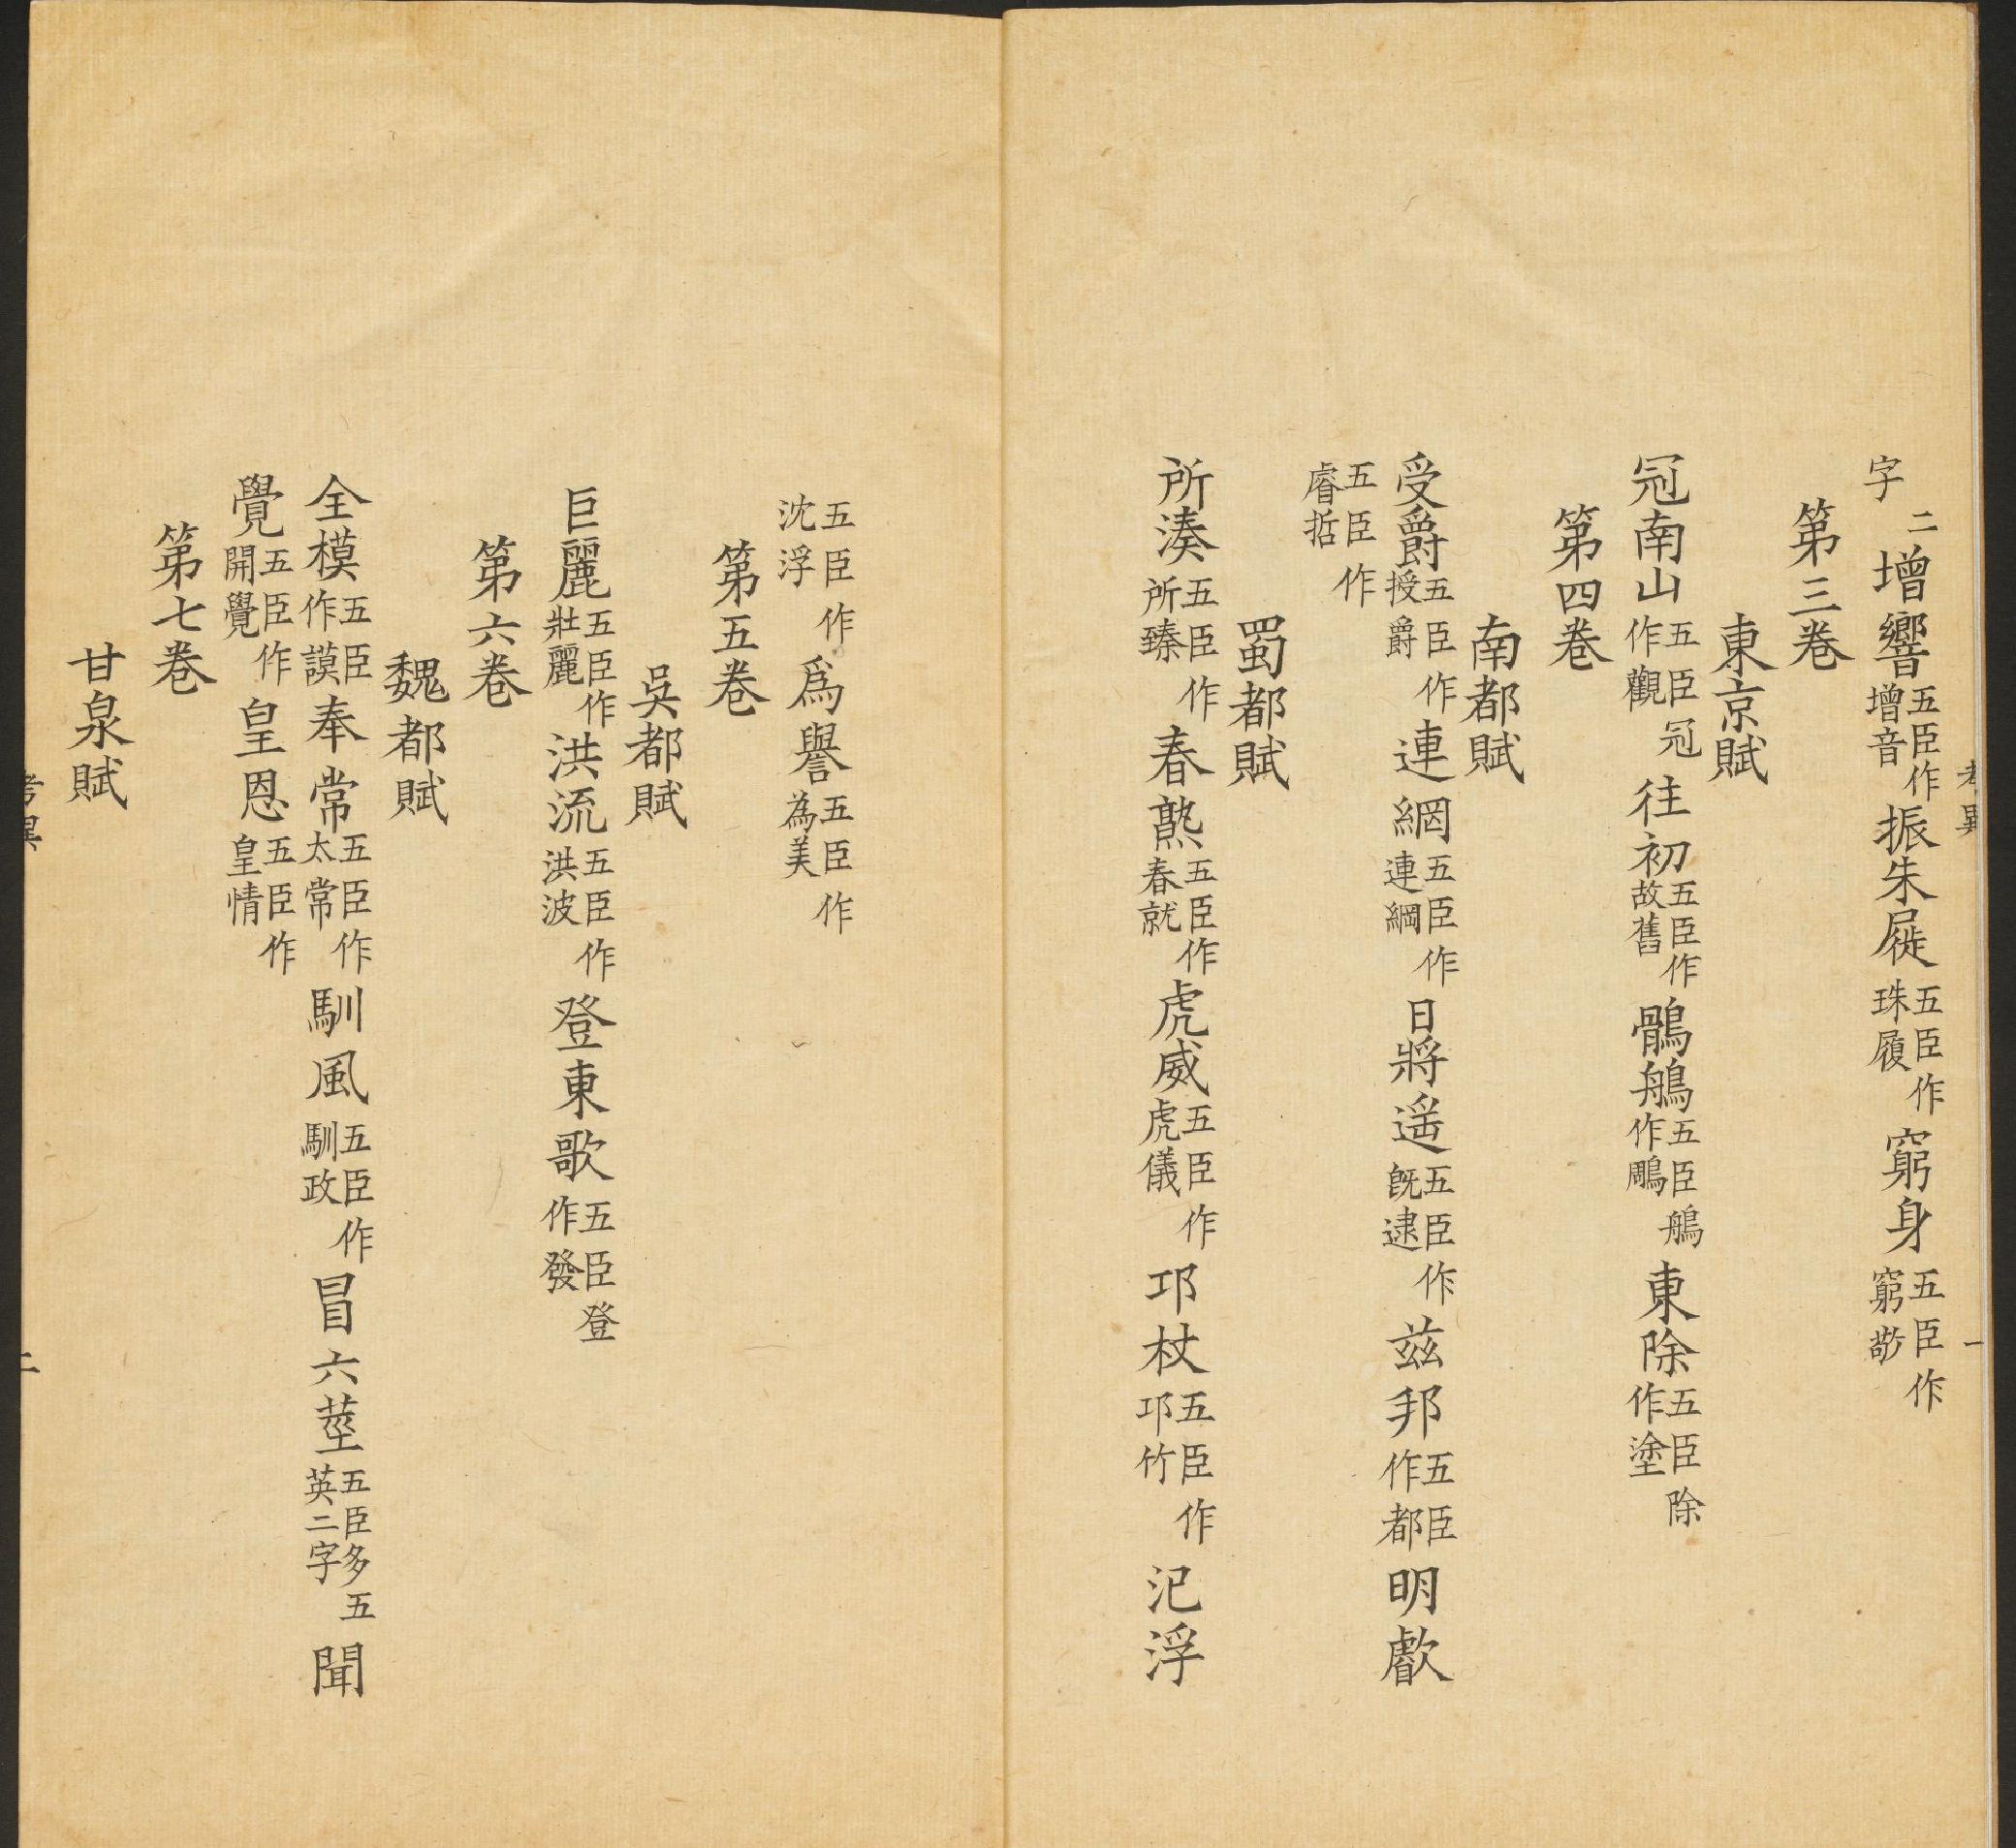 二字增響五臣作增音振朱屣五臣作珠履窮身五臣作窮
第三卷
東京賦
冠南山五臣冠作觀往初五臣作故舊鶻鵃五臣鵃作鵰東除五臣除作塗
第四卷
南都賦
受爵五臣作授爵連網五臣作連綱日將遥五臣作旣逮兹邦五臣作都明叡
五臣作睿哲
蜀都賦
所湊五臣作所臻春熟五臣作春就虎威五臣作虎儀邛杖五臣作邛竹汜浮
五臣作沈浮爲譽五臣作為美
第五卷
吳都賦
巨麗五臣作壯麗洪流五臣作洪波登東歌五臣登作發
第六卷
魏都賦
全模五臣作謨奉常五臣作太常馴風五臣作馴政冒六莖五臣多五英二字聞
覺五臣作開覺皇恩五臣作皇情
第七卷
甘泉賦
考異
一
考異
二